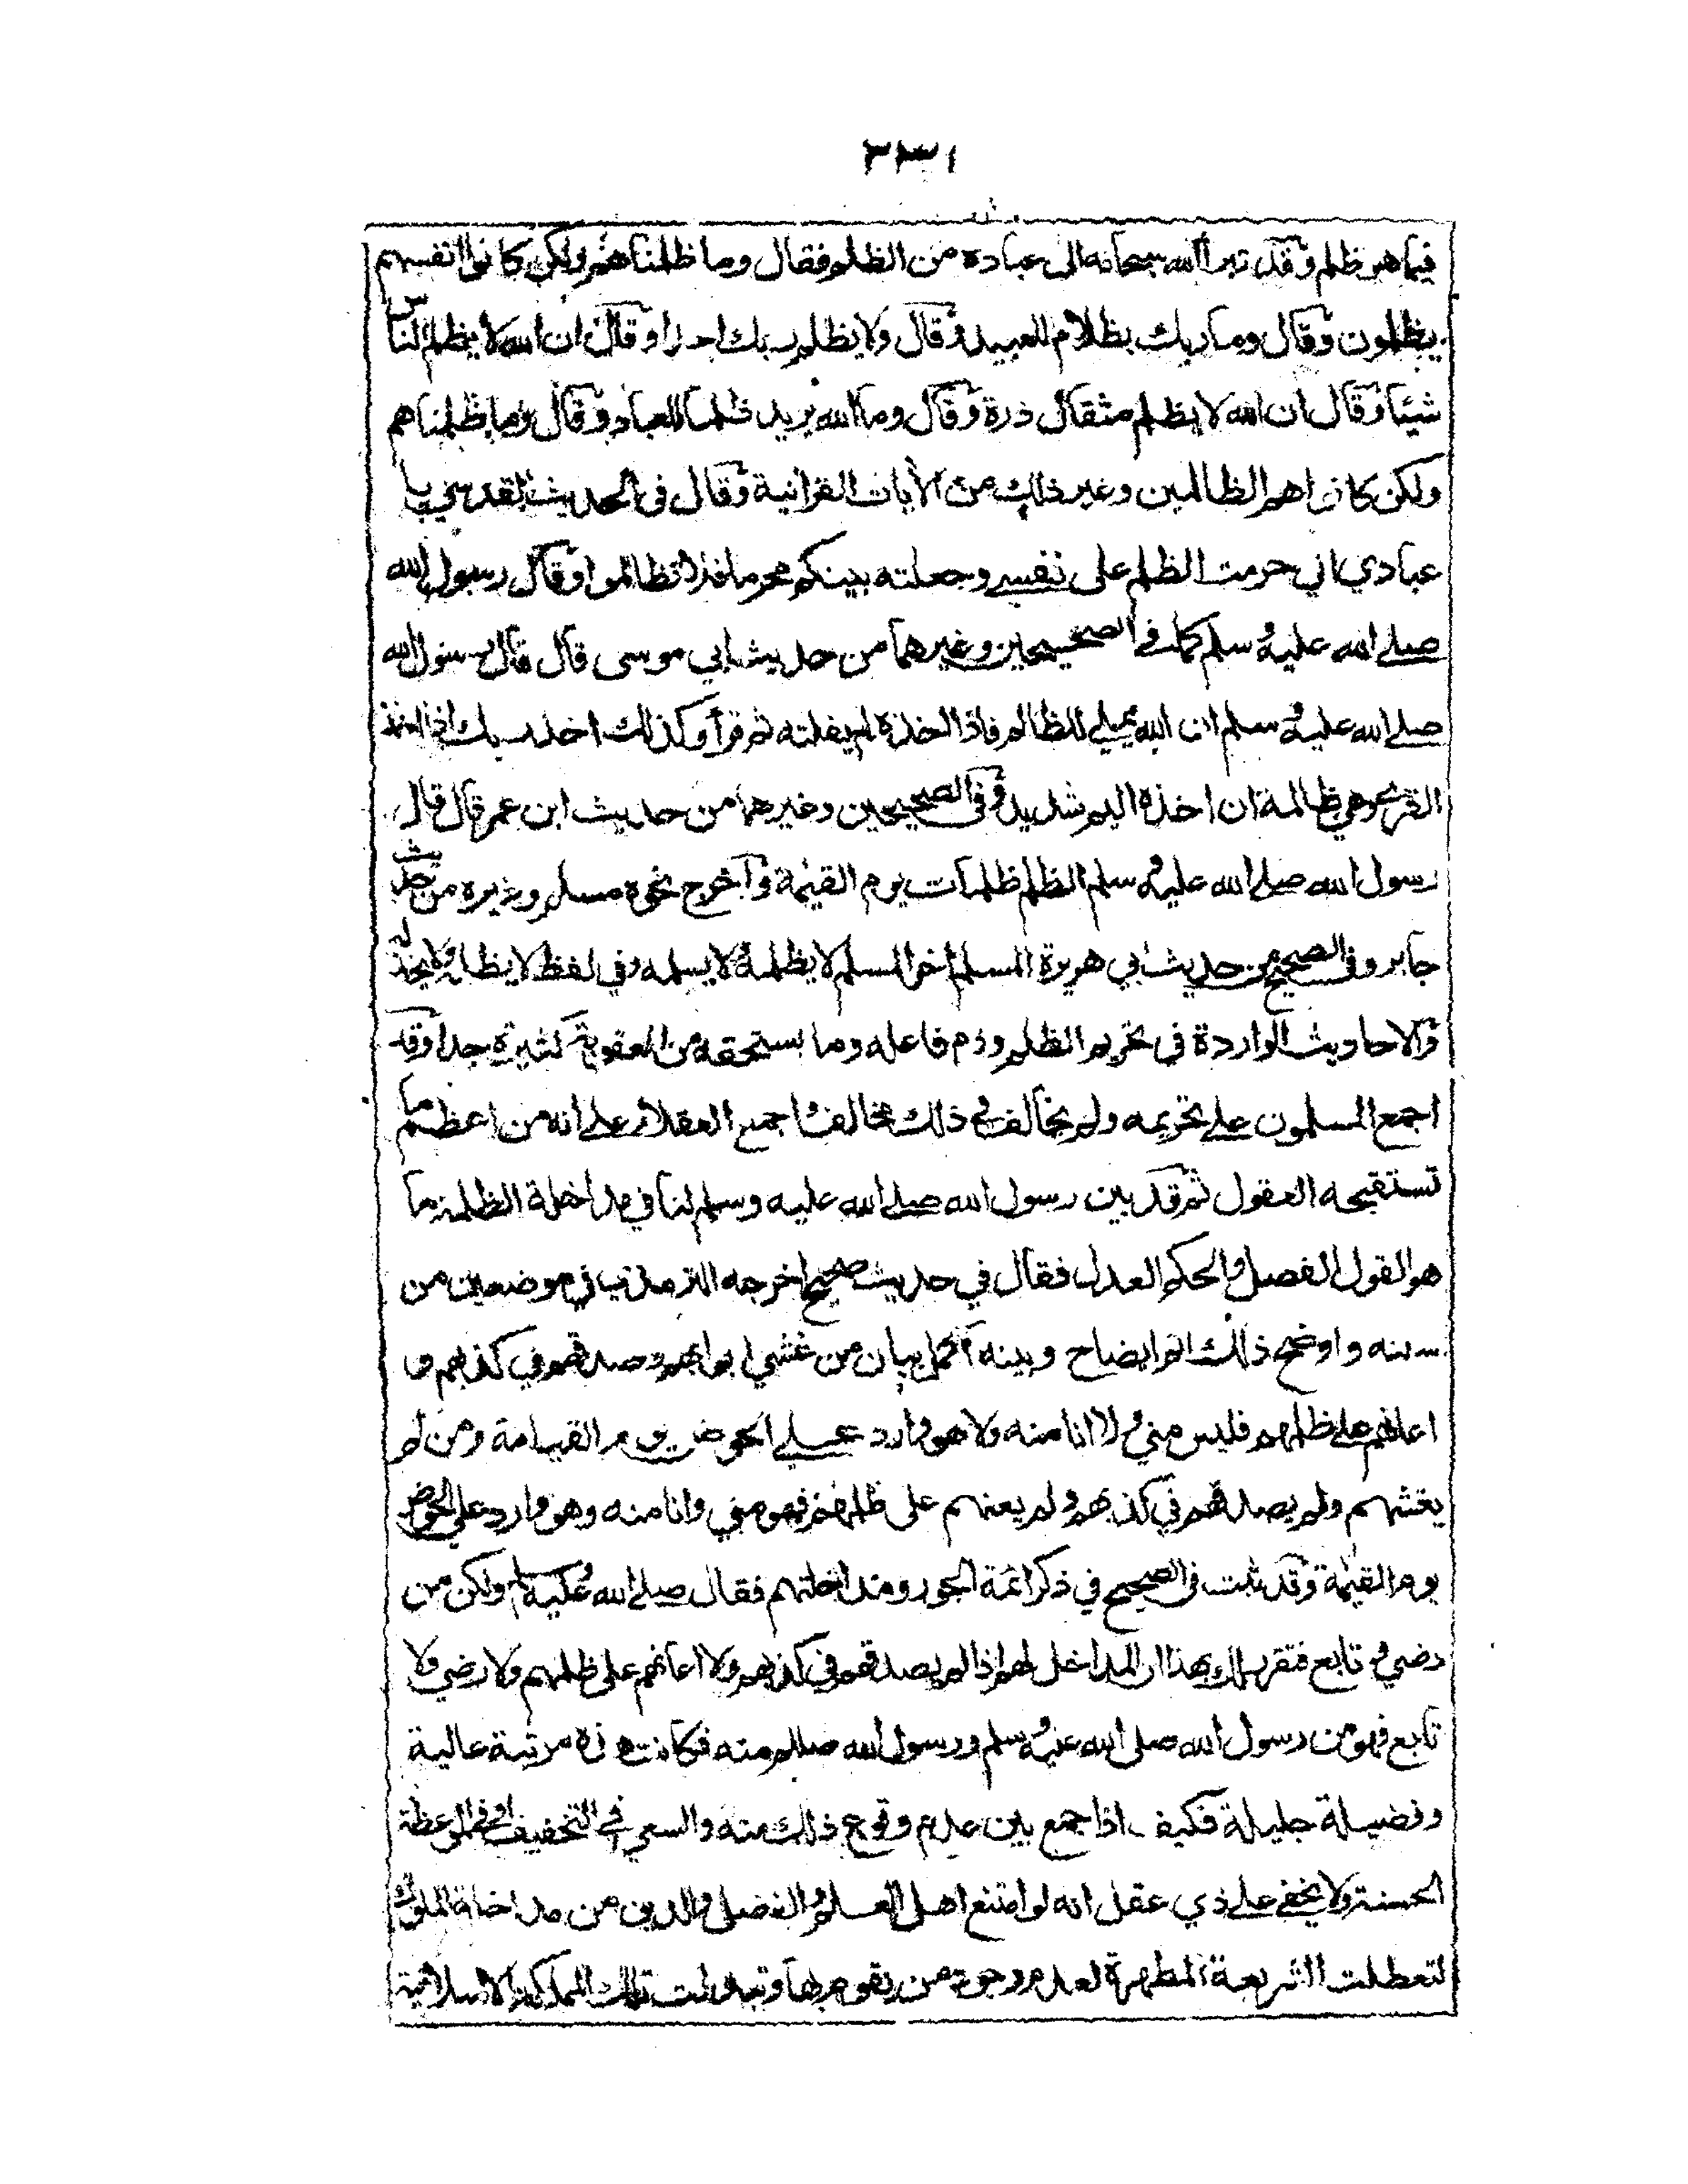 ٣٣١
فيما هو ظلم وقد تبرأ الله سبحانه الى عباده من الظلم فقال وما ظلمناهم ولكن كانوا انفسهم
يظلمون وقال وما ربك بظلام للعبيد وقال ولا يظلم ربك احدا وقال ان الله لا يظلم الناس
شيئا وقال ان الله لا يظلم مثقال ذرة وقال وما الله يريد ظلما للعباد وقال وما ظلمناهم
ولكن كانوا هم الظالمين وغير ذلك من الآيات القرانية وقال في الحديث القدسي يا
عبادي اني حرمت الظلم على نفسي وجعلته بينكم محرما فلا تظالموا وقال رسول الله
صلے الله عليه وسلم كما في الصحيحين وغيرهما من حديث ابي موسى قال قال رسول الله
صلے الله عليه وسلم ان الله يملي للظالم فاذا اخذه لم يفلته ثم قرأ وكذلك اخذ ربك اذا اخذ
القرى وهي ظالمة ان اخذه اليم شديد وفي الصحيحين وغيرهما من حديث ابن عمر قال قال
رسول الله صلے الله عليه وسلم الظلم ظلمات يوم القيمة واخرج نحوه مسلم وغيره من حديث
جابر وفي الصحيح من حديث ابي هريرة المسلم اخو المسلم لا يظلمه لا يسلمه وفي لفظ لا يظلمه ولا يخذله
والاحاديث الواردة في تحريم الظلم وذم فاعله وما يستحقه من العقوبة كثيرة جدا وقد
اجمع المسلمون علے تحريمه ولم يخالف في ذلك مخالف واجمع العقلاء علے انه من اعظم ما
تستقبحه العقول ثم قد بين رسول الله صلے الله عليه وسلم لنا في مداخلة الظلمة ما
هو القول الفصل والحكم العدل فقال في حديث صحيح اخرجه الترمذي في موضعين من
سننه واوضح ذلك اتم ايضاح وبينه اكمل بيان من غشي ابوابهم وصدقهم في كذبهم و
اعانهم علے ظلمهم فليس مني ولا انا منه ولا هو وارد علے الحوض يوم القيامة ومن لم
يغشهم ولم يصدقهم في كذبهم ولم يعنهم على ظلمهم فهو مني وانا منه وهو وارد على الحوض
يوم القيمة وقد ثبت في الصحيح في ذكر ائمة الجور ومداخلتهم فقال صلے الله عليه وسلم ولكن من
رضي وتابع فتقرر لك بهذا ان المداخل لهم اذا لم يصدقهم في كذبهم ولا اعانهم على ظلمهم ولا رضي ولا
تابع فهو من رسول الله صلى الله عليه وسلم ورسول الله صللم منه فكانت هذه مرتبة عالية
وفضيلة جليلة فكيف اذا جمع بين عدم وقوع ذلك منه والسعي في التخفيف او في الموعظة
الحسنة ولا يخفى علے ذي عقل انه لو امتنع اهل العلم والفضل والدين من مداخلة الملوك
لتعطلت الشريعة المطهرة لعدم وجود من يقوم بها وتبدلت تلك المملكة الاسلامية